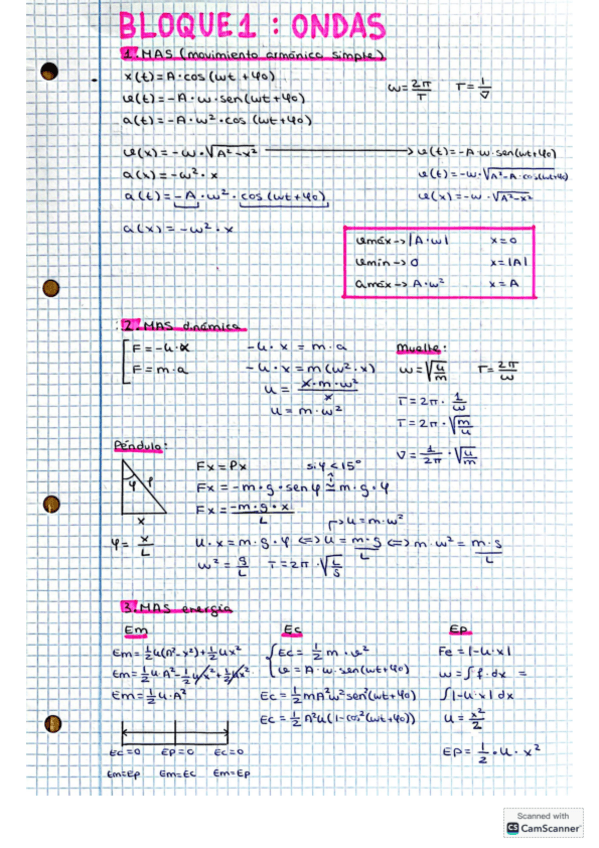 BLOQUE 1 : ONDAS
1. MAS (movimiento armónico simple)
x(t) = A·cos (ωt + φo)
v(t) = -A·ω·sen(ωt+φo)
a(t) = -A·ω²·cos (ωt+φo)
ω = 2π/T    T = 1/ν
v(x) = -ω·√(A²-x²) → v(t) = -A·ω·sen(ωt+φo)
a(x) = -ω²·x    v(t) = -ω·√(A²-A·cos(ωt+φo))
a(t) = -A·ω²·cos(ωt+φo)    v(x) = -ω·√(A²-x²)
a(x) = -ω²·x
vmáx -> |A·ω|    x=0
vmín -> 0    x=|A|
amáx -> A·ω²    x=A
2. MAS dinámica
F = -k·x    -k·x = m·a
F = m·a    -k·x = m(ω²·x)
k = x·m·ω²/x
k = m·ω²
Muelle:
ω = √(k/m)    T = 2π/ω
T = 2π·1/ω
T = 2π·√(m/k)
ν = 1/2π·√(k/m)
Péndulo:
φ l
x
φ = x/L
Fx = Px    si φ < 15°
Fx = -m·g·sen φ ≅ m·g·φ
Fx = -m·g·x/L
k = m·ω²
k·x = m·g·φ <=> k = m·g/L <=> m·ω² = m·g/L
ω² = g/L    T = 2π·√(L/g)
3. MAS energía
Em
Em = ½k(A²-x²)+½kx²
Em = ½k·A²-½kx²+½kx²
Em = ½k·A²
Ec=0    Ep=0    Ec=0
Em=Ep    Em=Ec    Em=Ep
Ec
Ec = ½m·v²
v = A·ω·sen(ωt+φo)
Ec = ½mA²ω²sen²(ωt+φo)
Ec = ½A²k(1-cos²(ωt+φo))
Ep
Fe = |-k·x|
w = ∫f·dx =
∫|-k·x| dx
k = x²/2
Ep = ½·k·x²
Scanned with
CS CamScanner